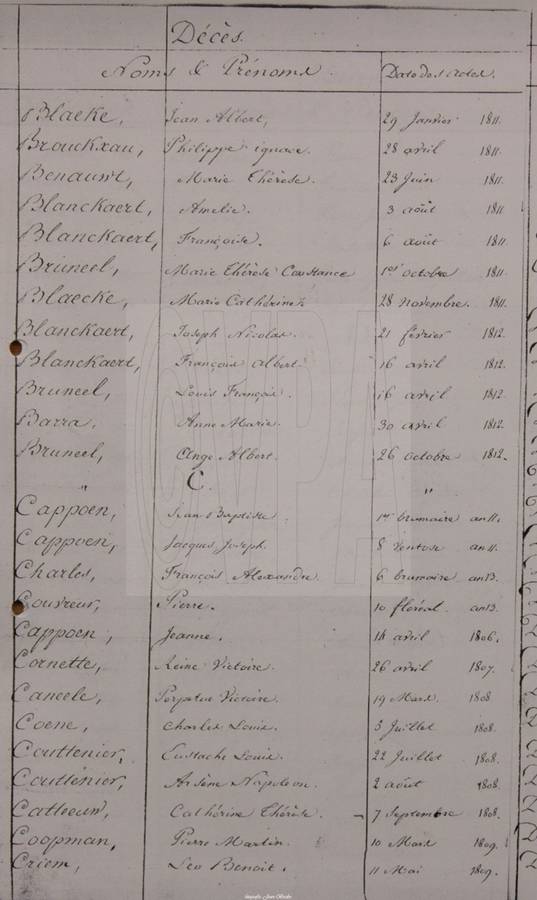 Décès.
Noms & Prénoms. Date des actes.
Blaeke, Jean Albert, 29 Janvier 1811.
Brouckxau, Philippe ignace. 28 avril 1811.
Benauwt, Marie Thérèse. 23 Juin 1811.
Blanckaert, Amelie. 3 août 1811
Blanckaert, Françoise. 6 août 1811.
Bruneel, Marie Thérèse Constance 1er octobre 1811.
Blaecke, Marie Cathérine 28 novembre. 1811.
Blanckaert, Joseph Nicolas. 21 février 1812.
Blanckaert, François albert. 16 avril 1812.
Bruneel, Louis François. 16 avril 1812.
Barra, Anne Marie. 30 avril 1812.
Bruneel, Ange Albert. 26 octobre 1812.
" C. "
Cappoen, Jean Baptiste 1er brumaire an 11.
Cappoen, Jacques Joseph. 8 Ventose an 11.
Charles, François Alexandre. 6 brumaire an 13.
Couvreur, Pierre. 10 floréal an 13.
Cappoen, Jeanne. 14 avril 1806.
Cornette, Reine Victoire. 26 avril 1807.
Caneele, Perpétue Victoire. 19 Mars. 1808
Coene, Charles Louis. 3 Juillet 1808.
Couttenier, Eustache Louis. 22 Juillet 1808.
Couttenier, Arsène Napoleon. 2 août 1808.
Catteeuw, Cathérine Thérèse. 7 Septembre 1808.
Coopman, Pierre Martin. 10 Mars 1809.
Criem, Leo Benoit. 11 Mai 1809.